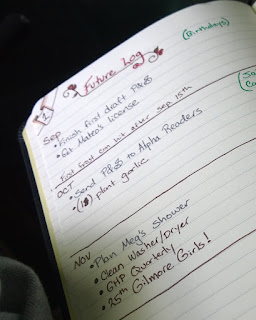 Future Log
(Birthdays)
1
Sep
• Finish first draft P&SS
• Get Mateo's license
First frost can hit after Sep. 15th
OCT
• Send P&SS to Alpha Readers
• plant garlic
NOV
• Plan Meg's Shower
• Clean Washer/Dryer
• GHP Quarterly
• 25th Gilmore Girls!